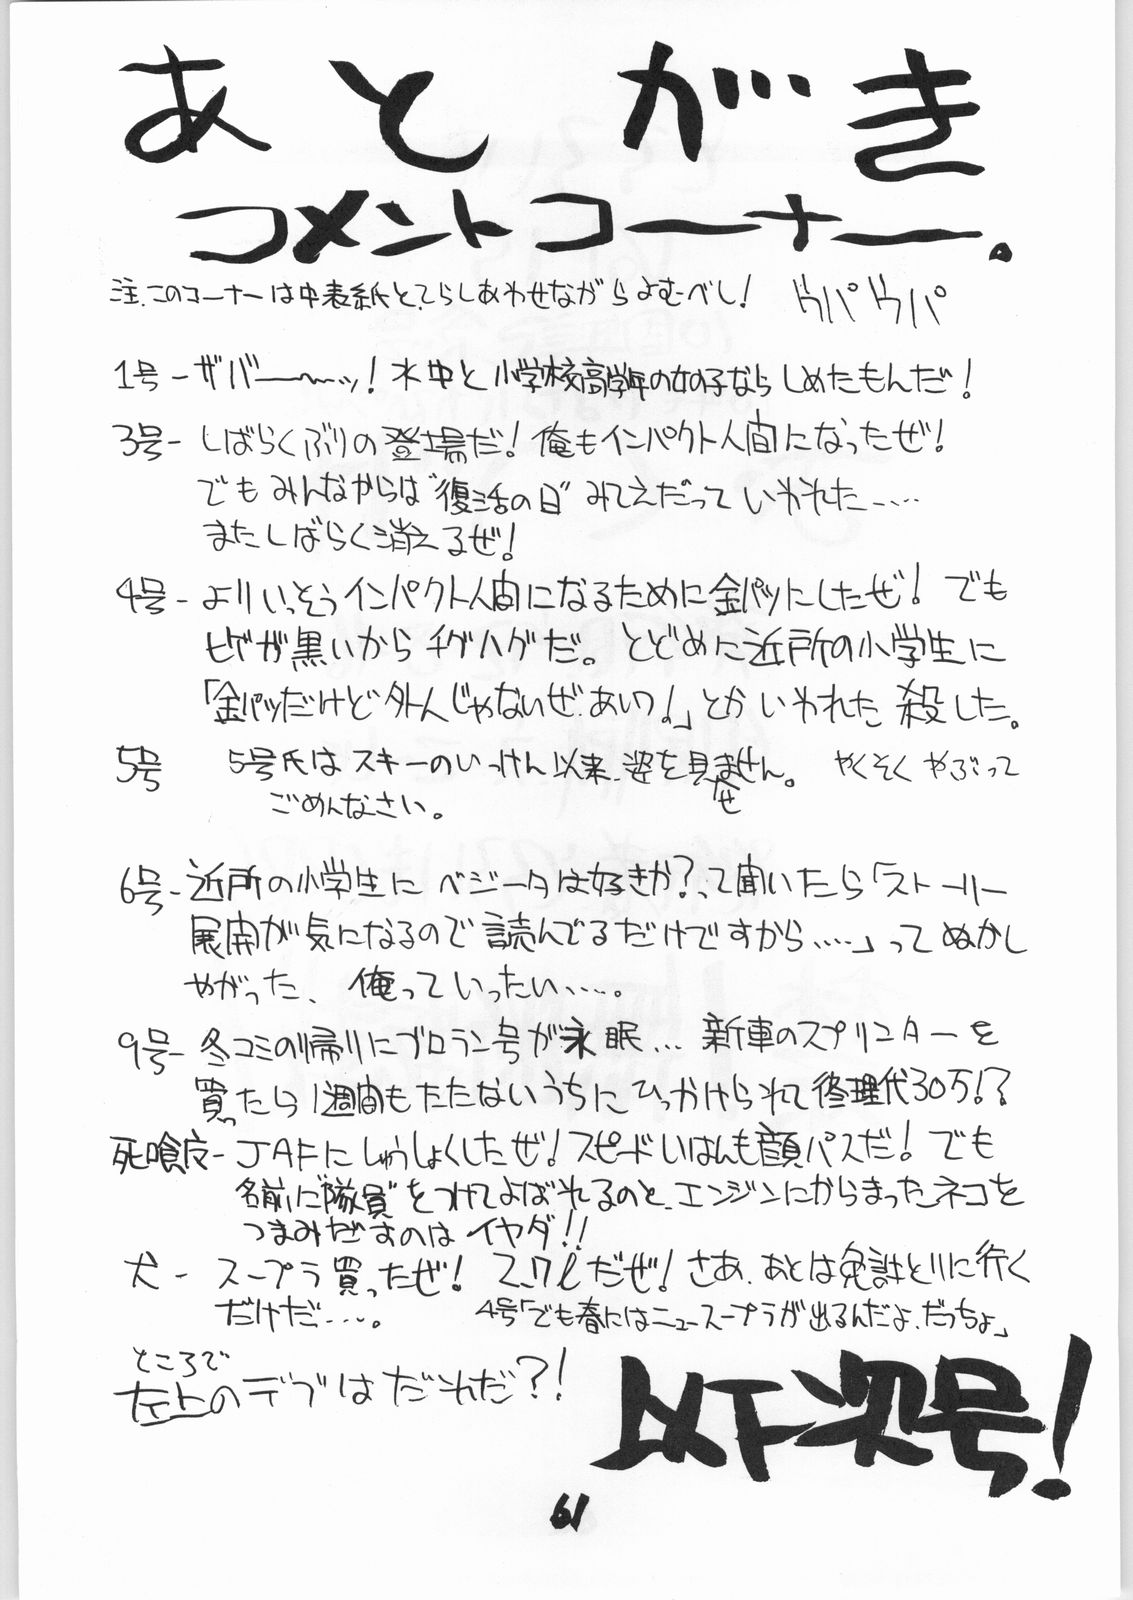 あとがき
コメントコーナー。
注.このコーナーは中表紙とてらしあわせながらよむべし! ウパウパ
1号-ザバー〜〜ッ! 水中と小学校高学年の女の子ならしめたもんだ!
3号-しばらくぶりの登場だ! 俺もインパクト人間になったぜ!
でもみんなからは"復活の日"みてえだっていわれた-----
またしばらく消えるぜ!
4号-よりいっそうインパクト人間になるために金パツにしたぜ! でも
ヒゲが黒いからチグハグだ。とどめに近所の小学生に
「金パツだけど外人じゃないぜ.あいつ!」とかいわれた 殺した。
5号 5号氏はスキーのいっけん以来、姿を見ません。 やくそくやぶって
せ
ごめんなさい。
6号-近所の小学生にベジータは好きか?、て聞いたら「ストーリー
展開が気になるので読んでるだけですから.....」ってぬかし
やがった、俺っていったい.....。
9号-冬コミの帰りにブロラン号が永眠... 新車のスプリンターを
買ったら1週間もたたないうちにひっかけられて修理代30万!?
死喰-JAFにしゅうしょくしたぜ! スピードいはんも顔パスだ! でも
名前に"隊員"をつけてよばれるのと、エンジンにからまったネコを
つまみだすのはイヤダ!!
犬-スープラ買ったぜ! 2.7ℓだぜ! さあ、あとは免許とりに行く
だけだ-----。 4号「でも春にはニュースープラが出るんだよ.だっちょ」
ところで
左上のデブはだれだ?!
以下次号!
61